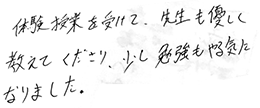 体験授業を受けて、先生も優しく
教えてくださり、少し勉強もやる気に
なりました。